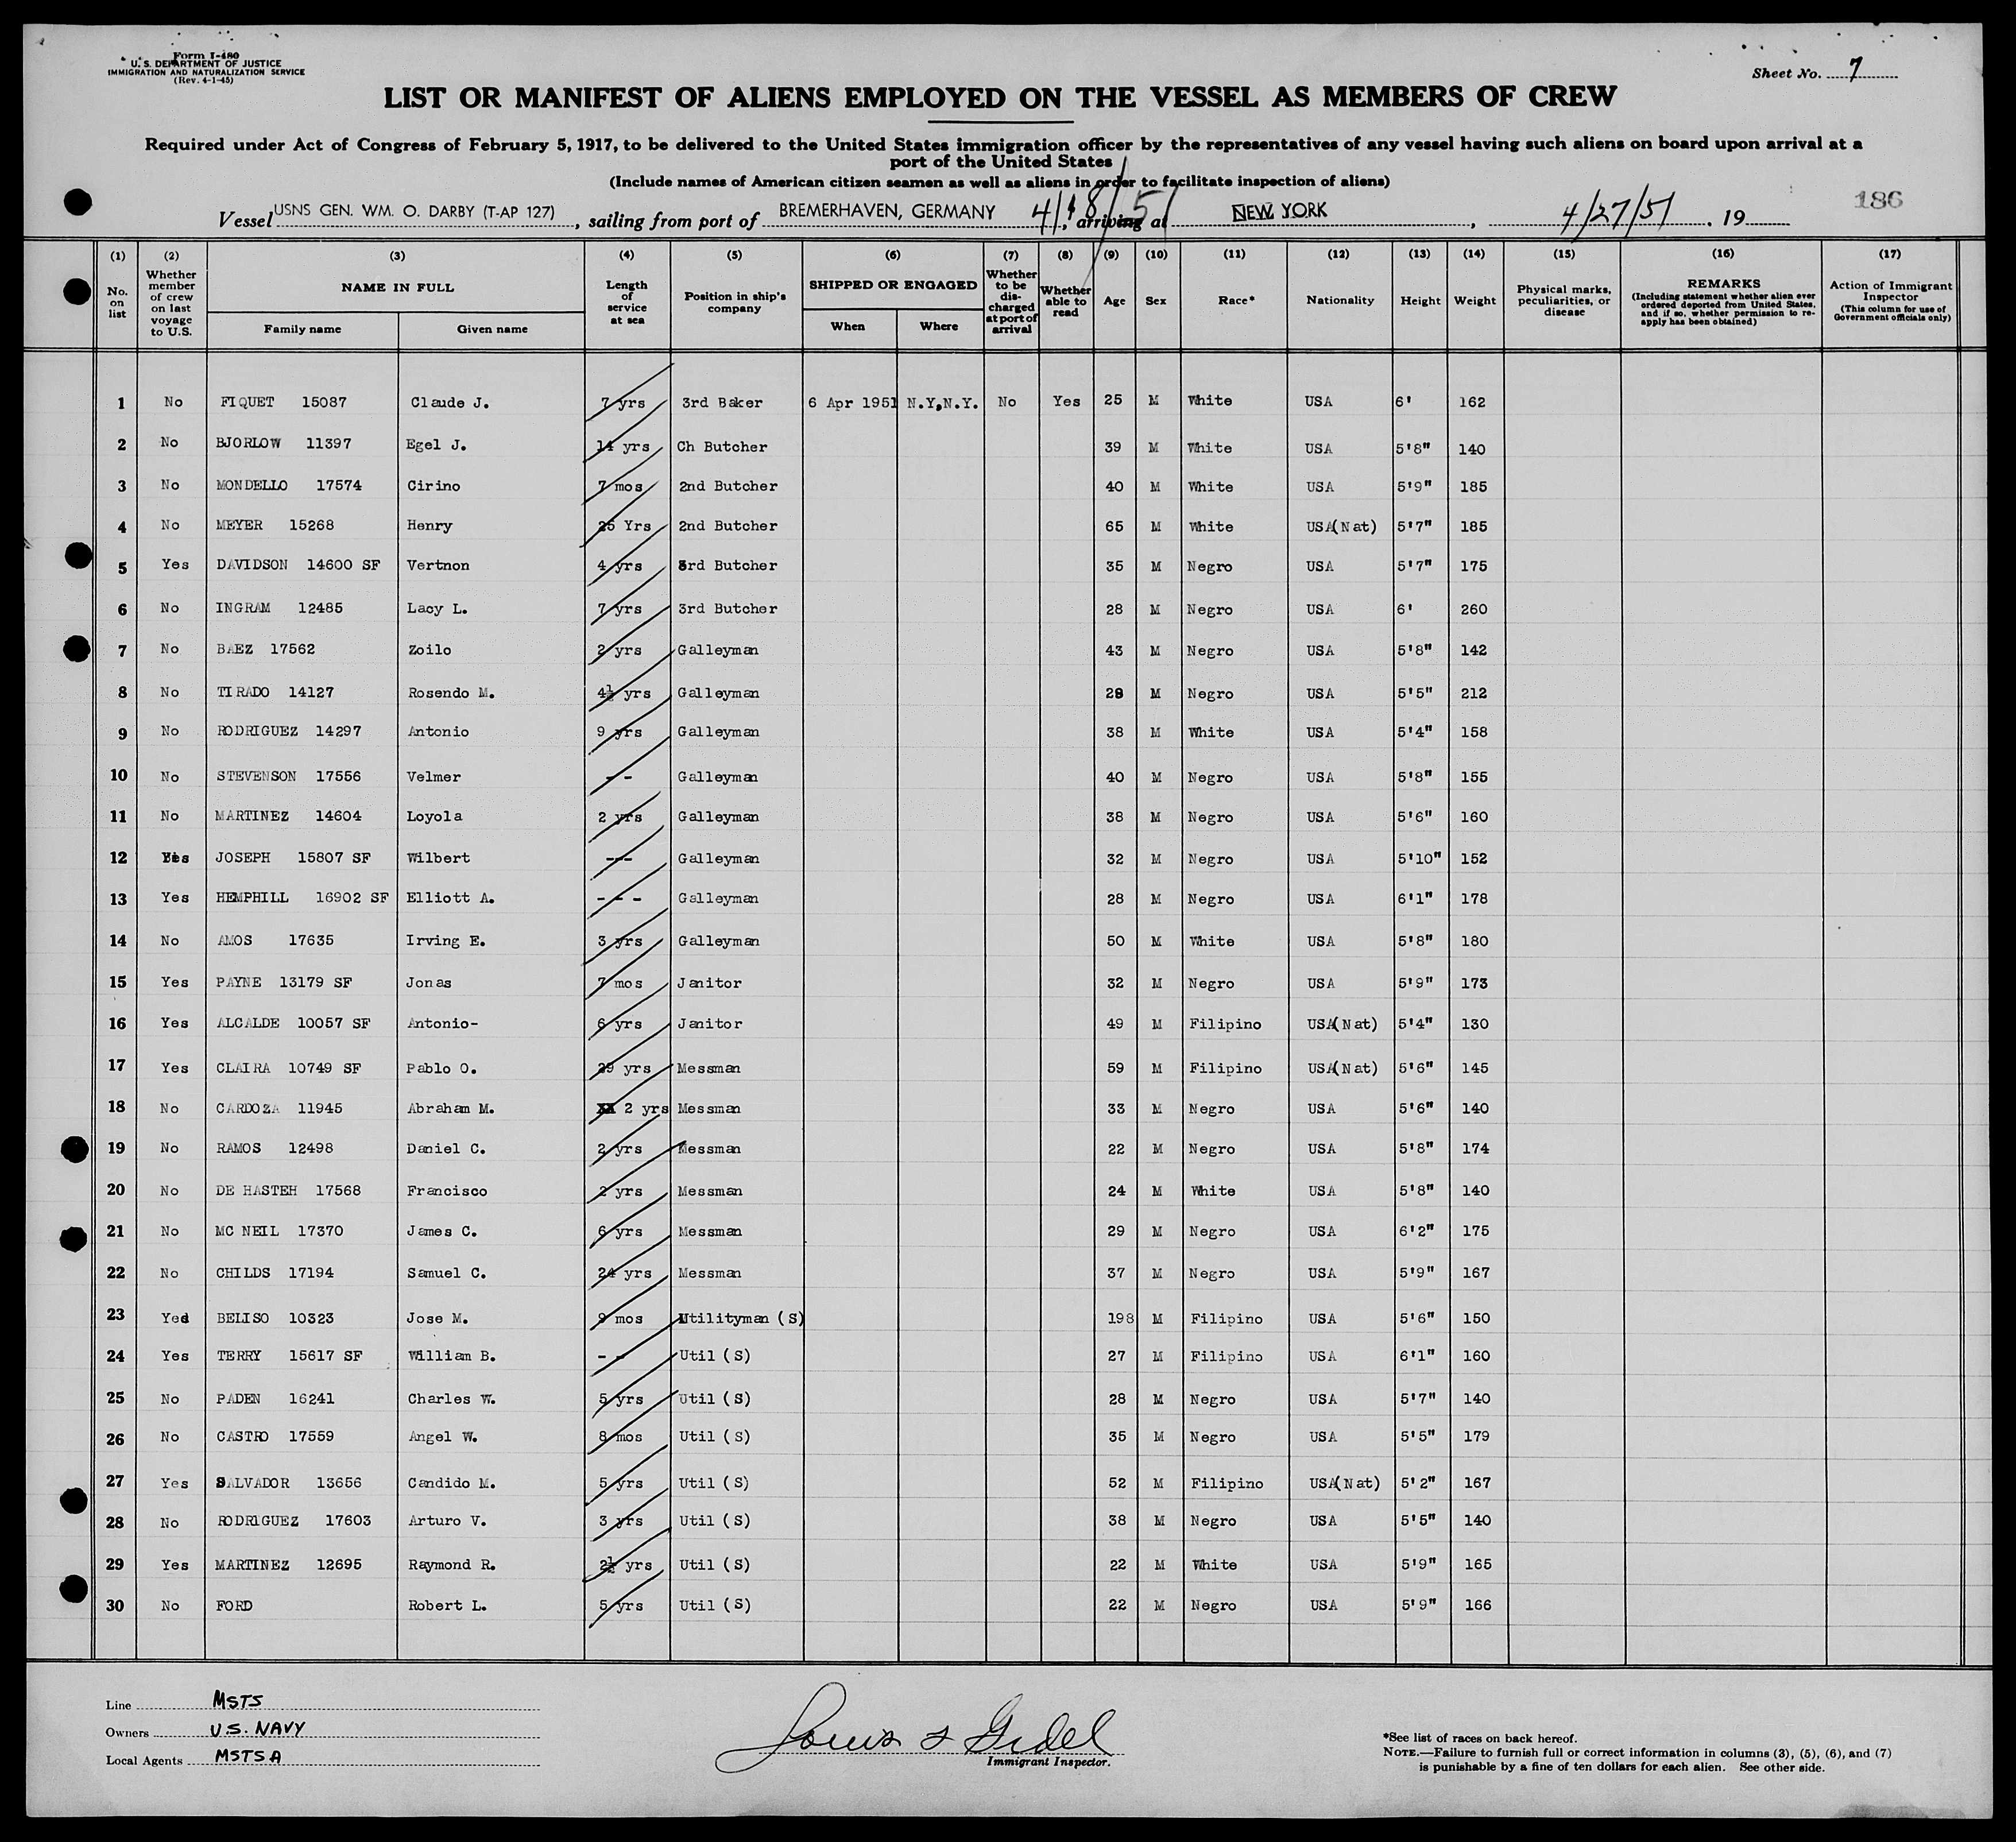 Form I-480
U. S. DEPARTMENT OF JUSTICE
IMMIGRATION AND NATURALIZATION SERVICE
(Rev. 4-1-45)
Sheet No. 7
LIST OR MANIFEST OF ALIENS EMPLOYED ON THE VESSEL AS MEMBERS OF CREW
Required under Act of Congress of February 5, 1917, to be delivered to the United States immigration officer by the representatives of any vessel having such aliens on board upon arrival at a
port of the United States
(Include names of American citizen seamen as well as aliens in order to facilitate inspection of aliens)
186
Vessel USNS GEN. WM. O. DARBY (T-AP 127), sailing from port of BREMERHAVEN, GERMANY 4/18/51, arriving at NEW YORK, 4/27/51, 19
(1) (2) (3) (4) (5) (6) (7) (8) (9) (10) (11) (12) (13) (14) (15) (16) (17)
No. on list
Whether member of crew on last voyage to U.S.
NAME IN FULL
Family name Given name
Length of service at sea
Position in ship's company
SHIPPED OR ENGAGED
When Where
Whether to be discharged at port of arrival
Whether able to read
Age
Sex
Race*
Nationality
Height
Weight
Physical marks, peculiarities, or disease
REMARKS
(Including statement whether alien ever ordered deported from United States, and if so, whether permission to re-apply has been obtained)
Action of Immigrant Inspector
(This column for use of Government officials only)
1 No FIQUET 15087 Claude J. 7 yrs 3rd Baker 6 Apr 1951 N.Y,N.Y. No Yes 25 M White USA 6' 162
2 No BJORLOW 11397 Egel J. 14 yrs Ch Butcher 39 M White USA 5'8" 140
3 No MONDELLO 17574 Cirino 7 mos 2nd Butcher 40 M White USA 5'9" 185
4 No MEYER 15268 Henry 25 Yrs 2nd Butcher 65 M White USA(Nat) 5'7" 185
5 Yes DAVIDSON 14600 SF Vertnon 4 yrs 3rd Butcher 35 M Negro USA 5'7" 175
6 No INGRAM 12485 Lacy L. 7 yrs 3rd Butcher 28 M Negro USA 6' 260
7 No BAEZ 17562 Zoilo 2 yrs Galleyman 43 M Negro USA 5'8" 142
8 No TIRADO 14127 Rosendo M. 4½ yrs Galleyman 28 M Negro USA 5'5" 212
9 No RODRIGUEZ 14297 Antonio 9 yrs Galleyman 38 M White USA 5'4" 158
10 No STEVENSON 17556 Velmer - - Galleyman 40 M Negro USA 5'8" 155
11 No MARTINEZ 14604 Loyola 2 yrs Galleyman 38 M Negro USA 5'6" 160
12 Yes JOSEPH 15807 SF Wilbert --- Galleyman 32 M Negro USA 5'10" 152
13 Yes HEMPHILL 16902 SF Elliott A. - - - Galleyman 28 M Negro USA 6'1" 178
14 No AMOS 17635 Irving E. 3 yrs Galleyman 50 M White USA 5'8" 180
15 Yes PAYNE 13179 SF Jonas 7 mos Janitor 32 M Negro USA 5'9" 173
16 Yes ALCALDE 10057 SF Antonio- 6 yrs Janitor 49 M Filipino USA(Nat) 5'4" 130
17 Yes CLAIRA 10749 SF Pablo O. 29 yrs Messman 59 M Filipino USA(Nat) 5'6" 145
18 No CARDOZA 11945 Abraham M. XX 2 yrs Messman 33 M Negro USA 5'6" 140
19 No RAMOS 12498 Daniel C. 2 yrs Messman 22 M Negro USA 5'8" 174
20 No DE HASTEH 17568 Francisco 2 yrs Messman 24 M White USA 5'8" 140
21 No MC NEIL 17370 James C. 6 yrs Messman 29 M Negro USA 6'2" 175
22 No CHILDS 17194 Samuel C. 24 yrs Messman 37 M Negro USA 5'9" 167
23 Yed BELISO 10323 Jose M. 9 mos Utilityman (S) 198 M Filipino USA 5'6" 150
24 Yes TERRY 15617 SF William B. - - Util (S) 27 M Filipino USA 6'1" 160
25 No PADEN 16241 Charles W. 5 yrs Util (S) 28 M Negro USA 5'7" 140
26 No CASTRO 17559 Angel W. 8 mos Util (S) 35 M Negro USA 5'5" 179
27 Yes SALVADOR 13656 Candido M. 5 yrs Util (S) 52 M Filipino USA(Nat) 5'2" 167
28 No RODRIGUEZ 17603 Arturo V. 3 yrs Util (S) 38 M Negro USA 5'5" 140
29 Yes MARTINEZ 12695 Raymond R. 2½ yrs Util (S) 22 M White USA 5'9" 165
30 No FORD Robert L. 5 yrs Util (S) 22 M Negro USA 5'9" 166
Line MSTS
Owners U.S. NAVY
Local Agents MSTSA
Immigrant Inspector.
*See list of races on back hereof.
NOTE.—Failure to furnish full or correct information in columns (3), (5), (6), and (7)
is punishable by a fine of ten dollars for each alien. See other side.